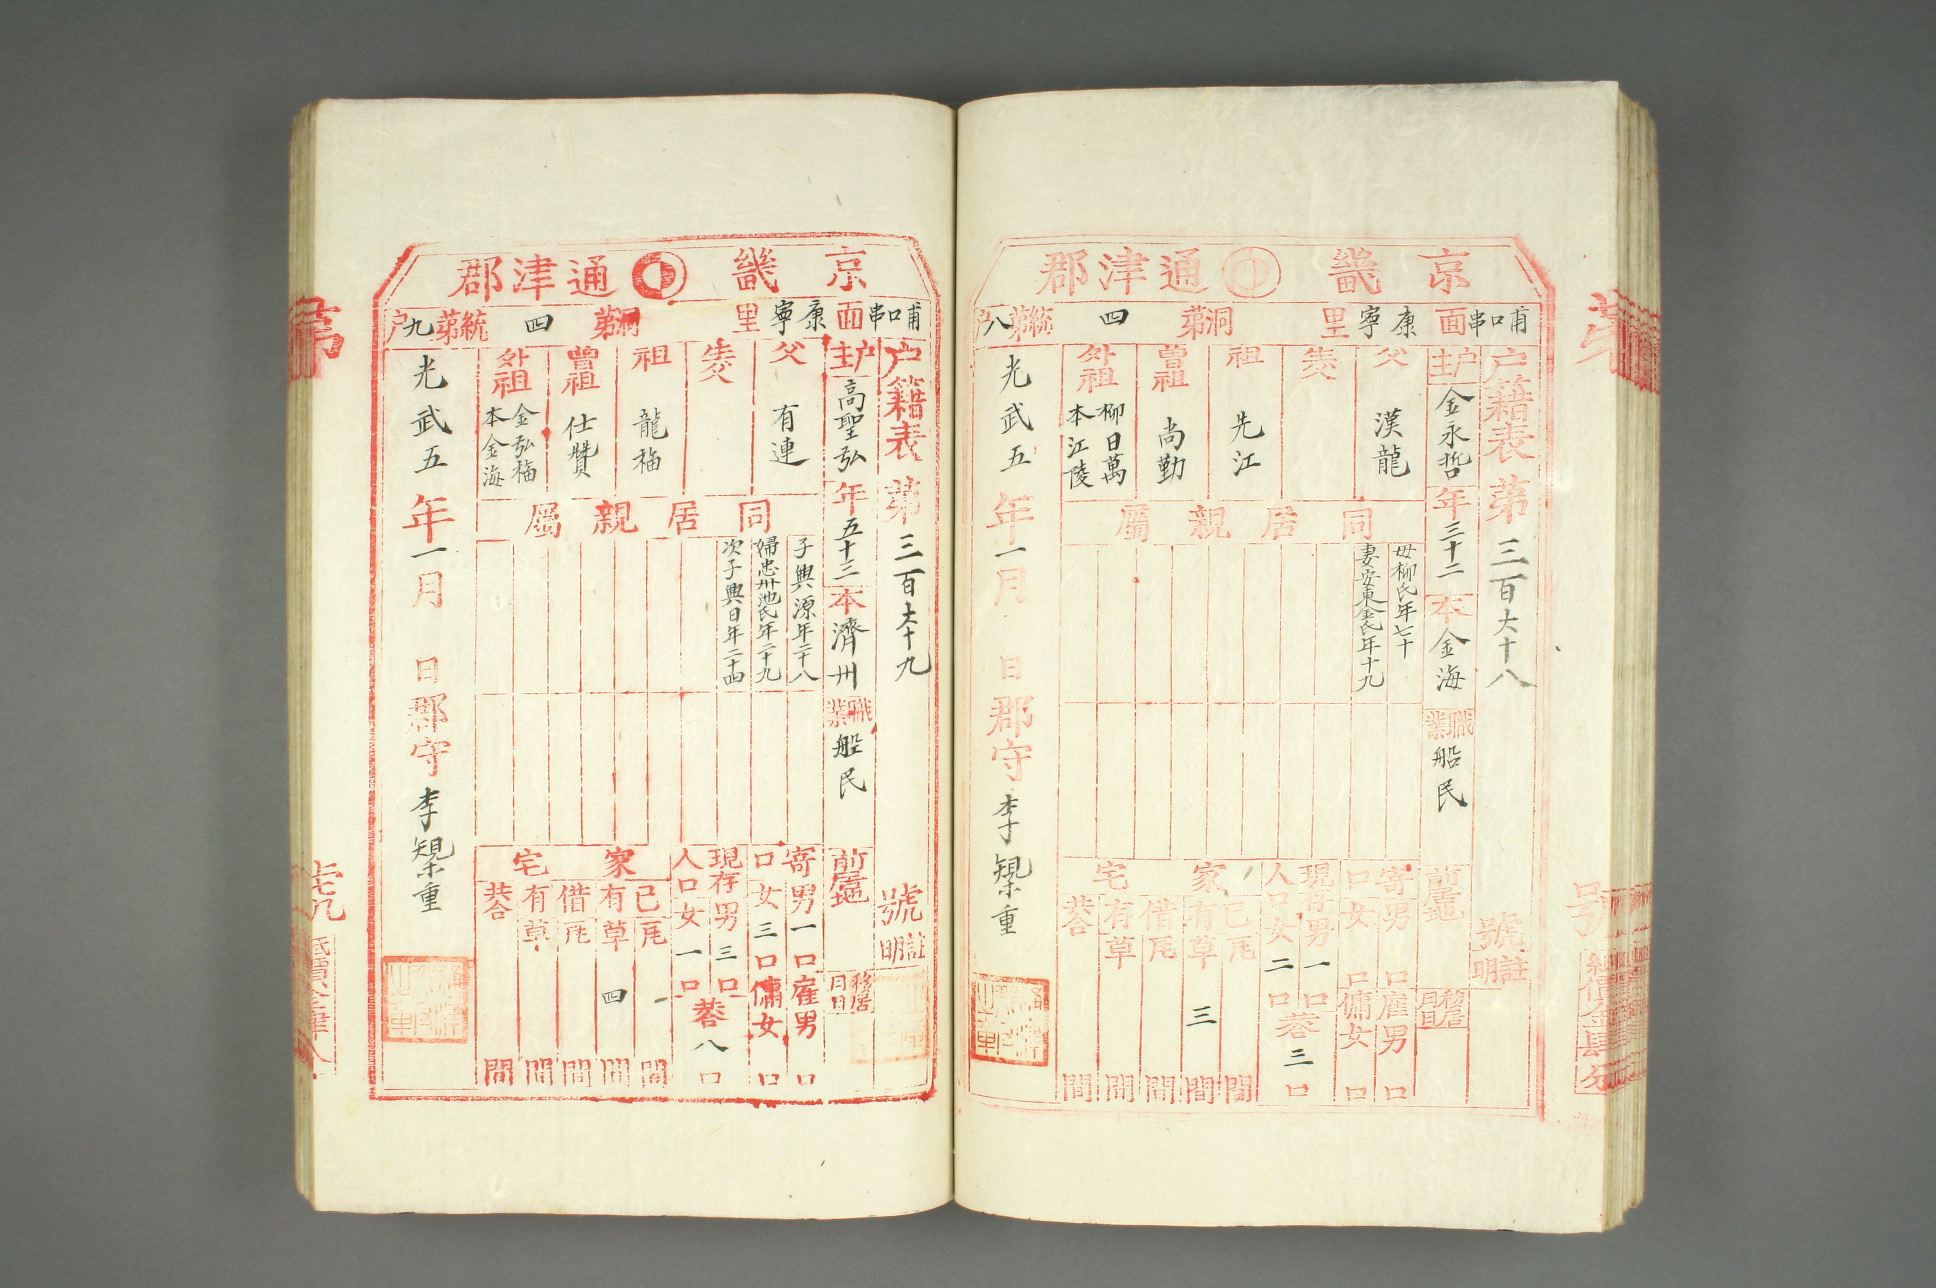 京畿 通津郡
甫口串面 康寧里 洞第四統第八户
户籍表第三百六十八號
註明
户主金永哲年三十二本金海職業船民
前居地
移居月日
父漢龍
生父
祖先江
曾祖尚勤
外祖柳日萬本江陵
同居親屬
母柳氏年七十
妻安東金氏年十九
寄口男口女口
雇男口傭女口
現存人口男一口女二口共三口
家宅
己有瓦間
草三間
借有瓦間
草間
共合間
光武五年一月日郡守李榘重
京畿 通津郡
甫口串面 康寧里 洞第四統第九户
户籍表第三百六十九號
註明
户主高聖弘年五十三本濟州職業船民
前居地
移居月日
父有連
生父
祖龍福
曾祖仕贊
外祖金弘福本金海
同居親屬
子興源年二十八
婦忠州池氏年二十九
次子興日年二十四
寄口男一口女三口
雇男口傭女口
現存人口男三口女一口共八口
家宅
己有瓦一間
草四間
借有瓦間
草間
共合間
光武五年一月日郡守李榘重